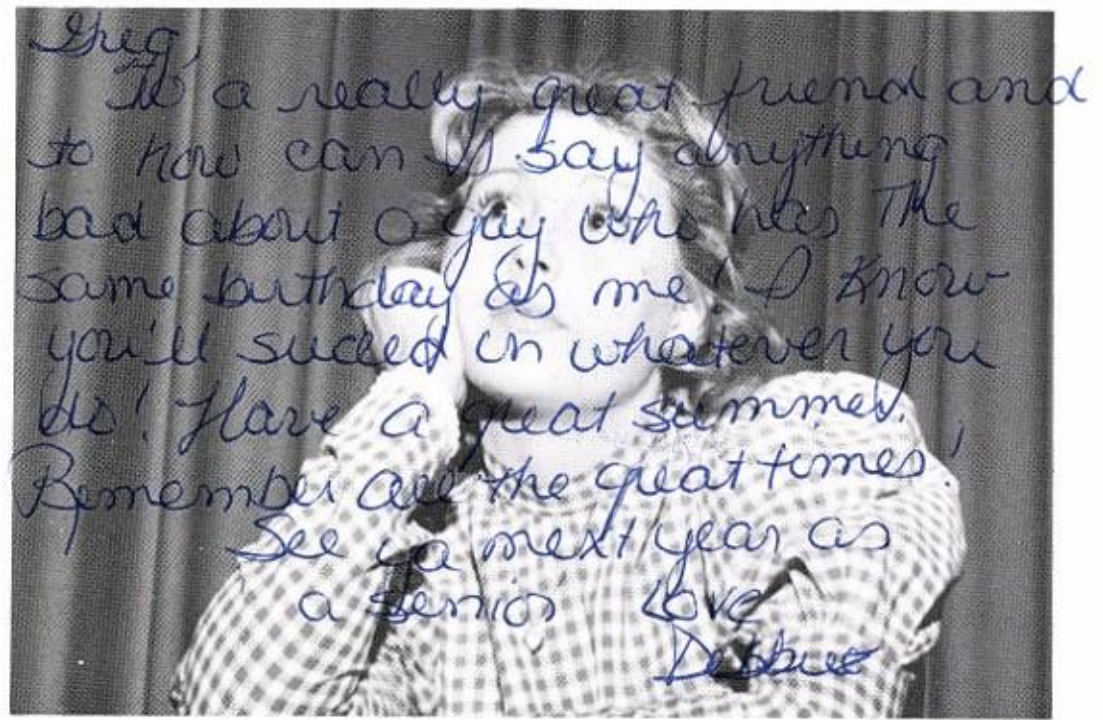 Greg,
To a really great friend and
to how can I say anything
bad about a guy who has the
same birthday as me! I know
you'll succed in whatever you
do! Have a great summer.
Remember all the great times!
See ya next year as
a senior Love
Debbie